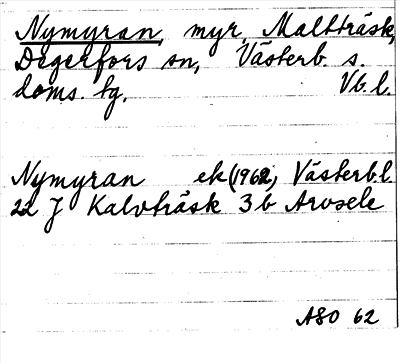 Nymyran, myr, Maltträsk,
Degerfors sn, Västerb. s.
doms. tg, Vb. l.
Nymyran ek (1962) Västerb.l.
22 J Kalvträsk 3b Arvsele
ASO 62